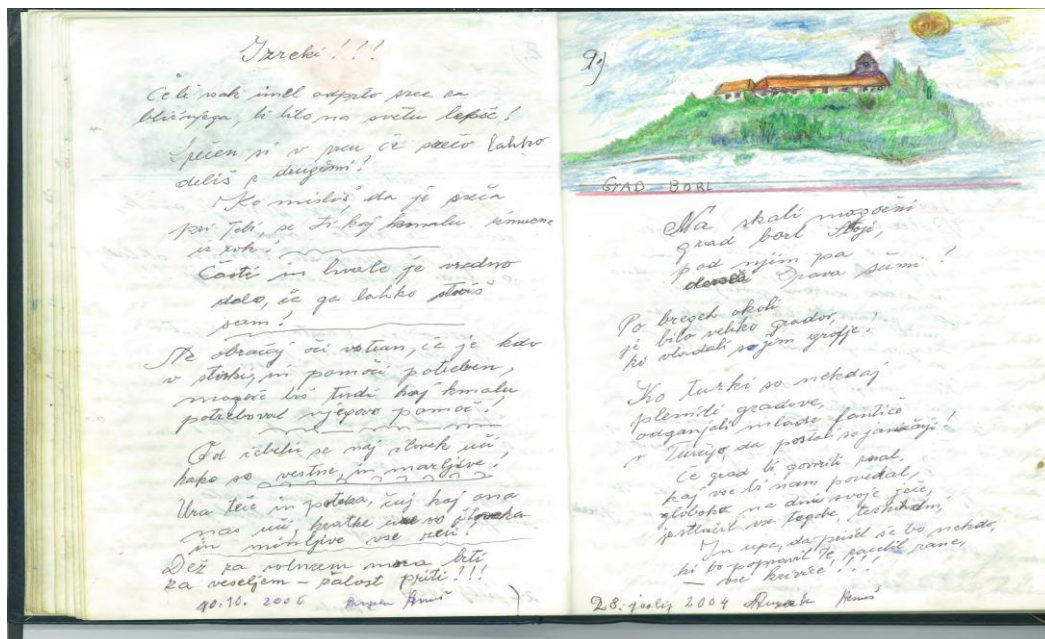 Izreki!!!
Če bi vsak imel odprto srce za
bližnjega, bi bilo na svetu lepše!
Srečen si v srcu če srečo lahko
deliš z drugimi!
Ko misliš da je sreča
pri tebi, se ti kaj kmalu izmuzne
iz rok!
Časti in hvale je vredno
delo, če ga lahko storiš
sam!
Ne obračaj oči vstran, če je kdo
v stiski, in pomoči potreben,
mogoče boš tudi kaj kmalu
potreboval njegovo pomoč!
Od čebelic se naj človek uči,
kako so vestne, in marljive!
Ura teče in poteka, čuj kaj ona
nas uči, kratke ure so človeka
in minljive vse reči!
Dež za solncem mora biti
za veseljem - žalost priti!!!
10.10. 2006
9.)
GRAD BORL
Na skali mogočni
grad borl stoji,
pod njim pa
Drava šumi!
Po bregeh okoli
je bilo veliko gradov,
ki vladali so jim grofje!
Ko turki so nekdaj
plenili gradove,
odganjali mlade fantiče
v Turčijo, da postali so janičarji!
Če grad bi govoriti znal,
kaj vse bi nam povedal,
globoko na dnu svoje ječe,
In upa, da prišel še bo nekdo,
ki bo popravil te, zacelil rane,
- vse krivice!!!
28. julij 2004